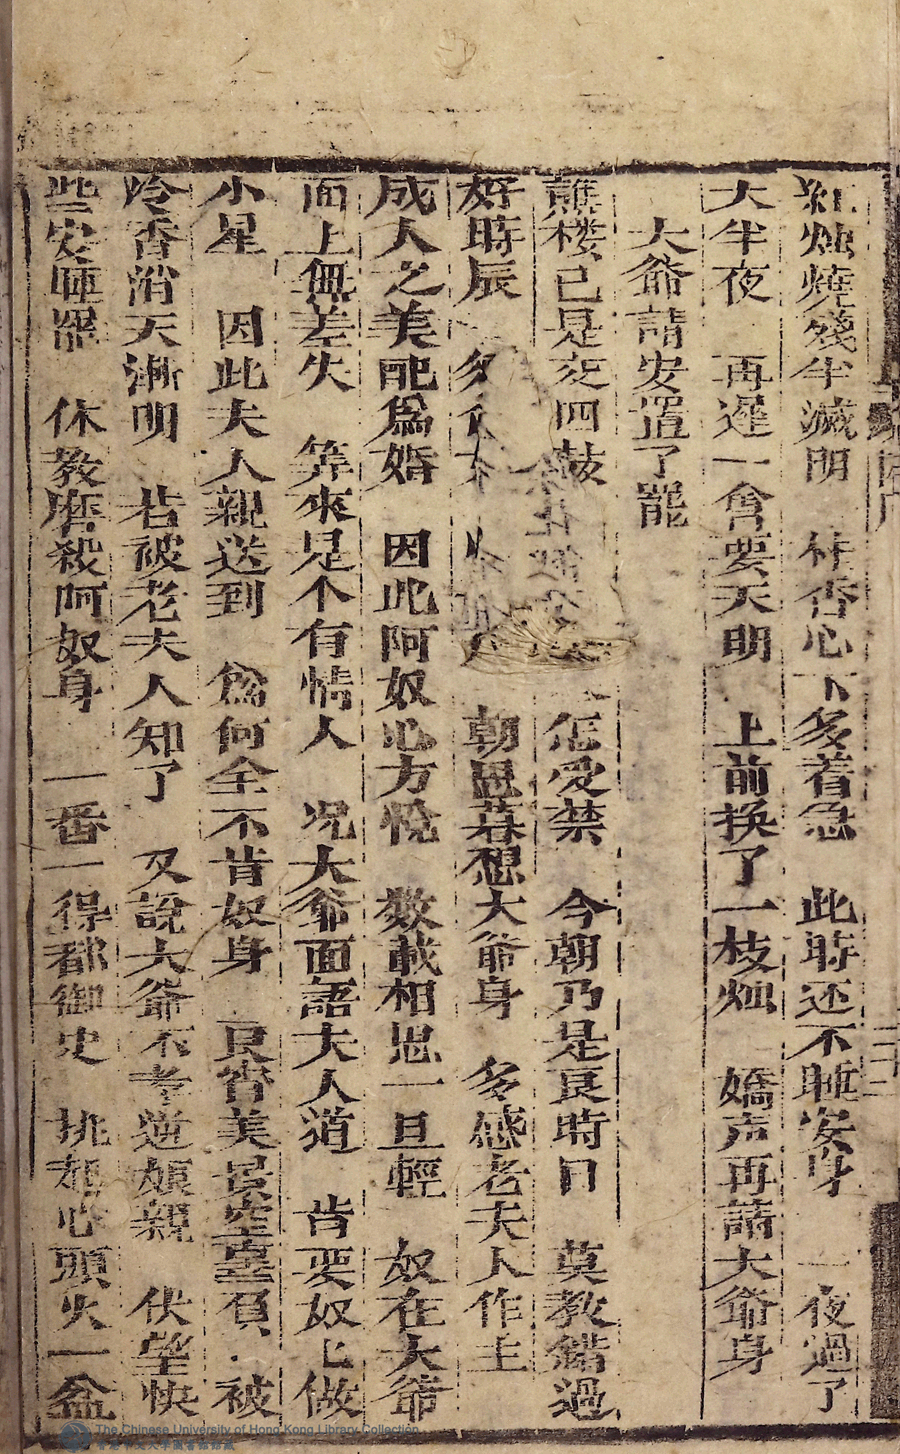 紅烛燒殘半滅明　杜杏心下多着急　此時还不睡安身　一夜過了
大半夜　再遲一會要天明　上前换了一枝烛　嬌声再請大爺身
大爺請安置了罷
譙楼已是交四鼓　怎受禁　今朝乃是良時日　莫教錯過
好時辰　朝思暮想大爺身　多感老夫人作主
成人之美配爲婚　因此阿奴心方悅　数載相思一旦輕　奴在大爺
面上無差失　筭來是个有情人　况大爺面語夫人道　肯要奴匕做
小星　因此夫人親送到　爲何全不肯奴身　良宵美景空辜負　被
冷香消天漸明　若被老夫人知了　又說大爺不孝逆娘親　伏望快
些安睡罷　休教磨殺阿奴身　一番一得都御史　挑起心頭火一盆
The Chinese University of Hong Kong Library Collection
香港中文大學圖書館館藏